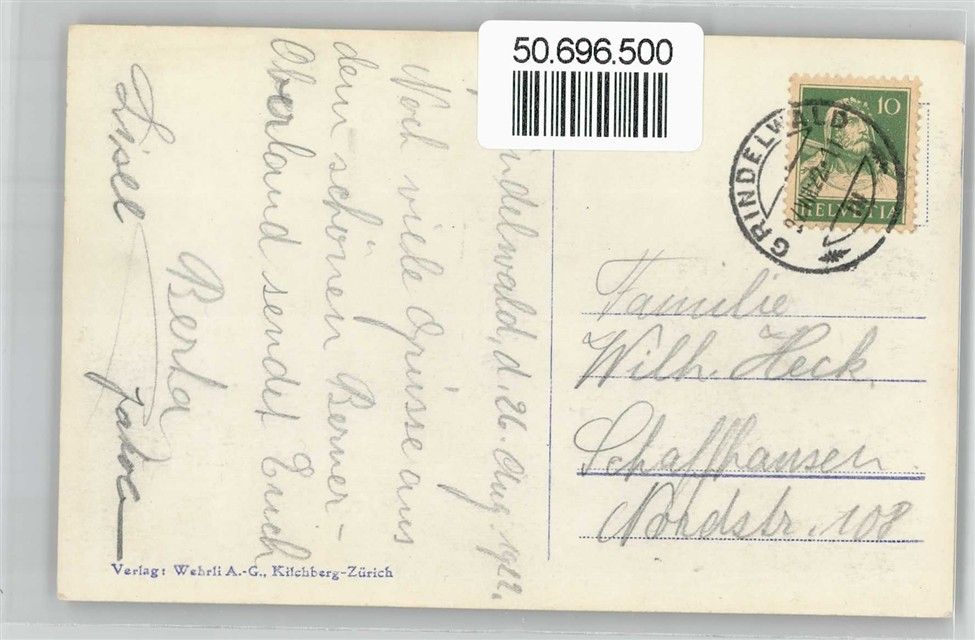 50.696.500
10
HELVETIA
GRINDELWALD
indelwald, d. 26. Aug. 1922.
Noch viele Grüsse aus
dem schönen Berner-
Oberland sendet Euch
Berta
Lisel
Familie
Wilh. Heck.
Schaffhausen.
Nordstr. 108
Verlag: Wehrli A.-G., Kilchberg-Zürich